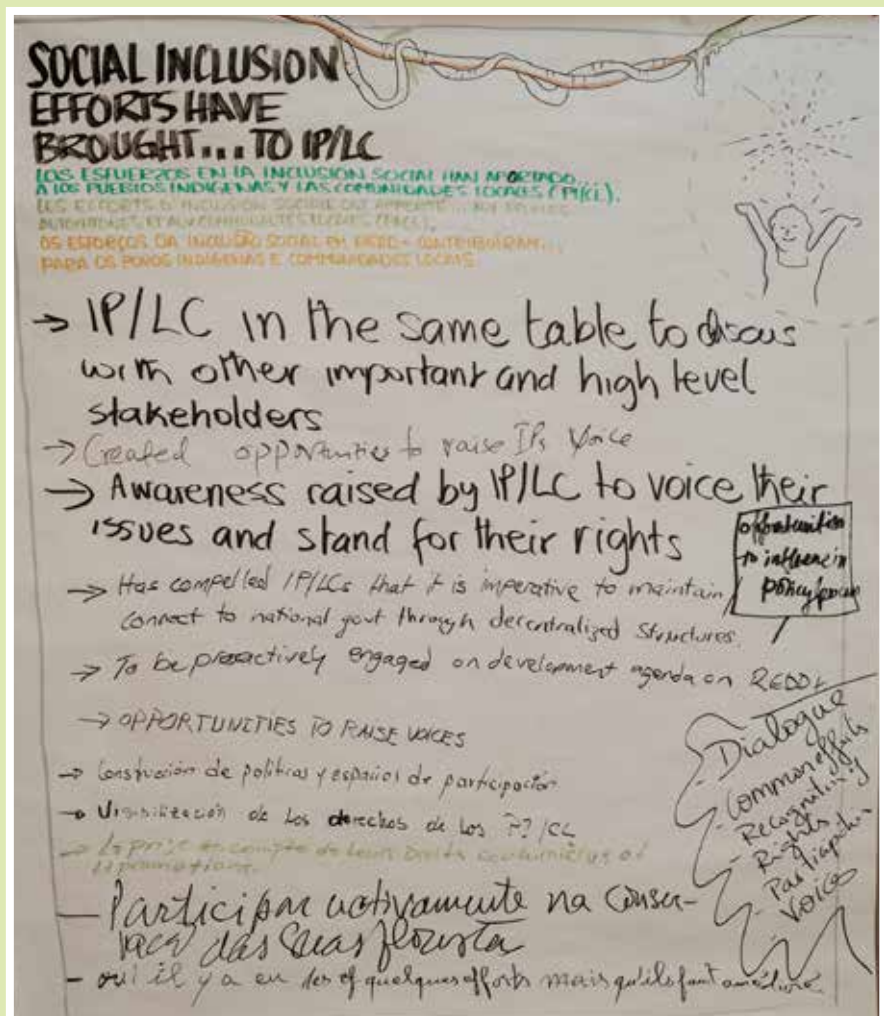 SOCIAL INCLUSION
EFFORTS HAVE
BROUGHT... TO IP/LC
LOS ESFUERZOS EN LA INCLUSION SOCIAL HAN APORTADO...
A LOS PUEBLOS INDIGENAS Y LAS COMUNIDADES LOCALES
LES EFFORTS D'INCLUSION SOCIALE ONT APPORTÉ... AUX
OS ESFORÇOS DA INCLUSÃO SOCIAL EM REDD+ CONTRIBUIRAM...
PARA OS POVOS INDIGENAS E COMMUNIDADES LOCAIS.
→ IP/LC in the same table to discus
with other important and high level
stakeholders
→ Created opportunities to raise IPs Voice
→ Awareness raised by IP/LC to voice their
issues and stand for their rights
opportunities
to influence in
policy
→ Has compelled IP/LCs that it is imperative to maintain
connect to national govt through decentralized structures.
→ To be proactively engaged on development agenda on REDD+
→ OPPORTUNITIES TO RAISE VOICES
→ Construción de politicas y espacios de participación
→ Visibilización de los derechos de los PI/CL
→ La prise en compte de leurs Droits
- Participar activamente na conser-
das suas floresta
- oui il y a eu des quelques efforts mais qu'ils faut
Dialogue
- Common efforts
- Recognition
- Rights
- Participation
- Voices